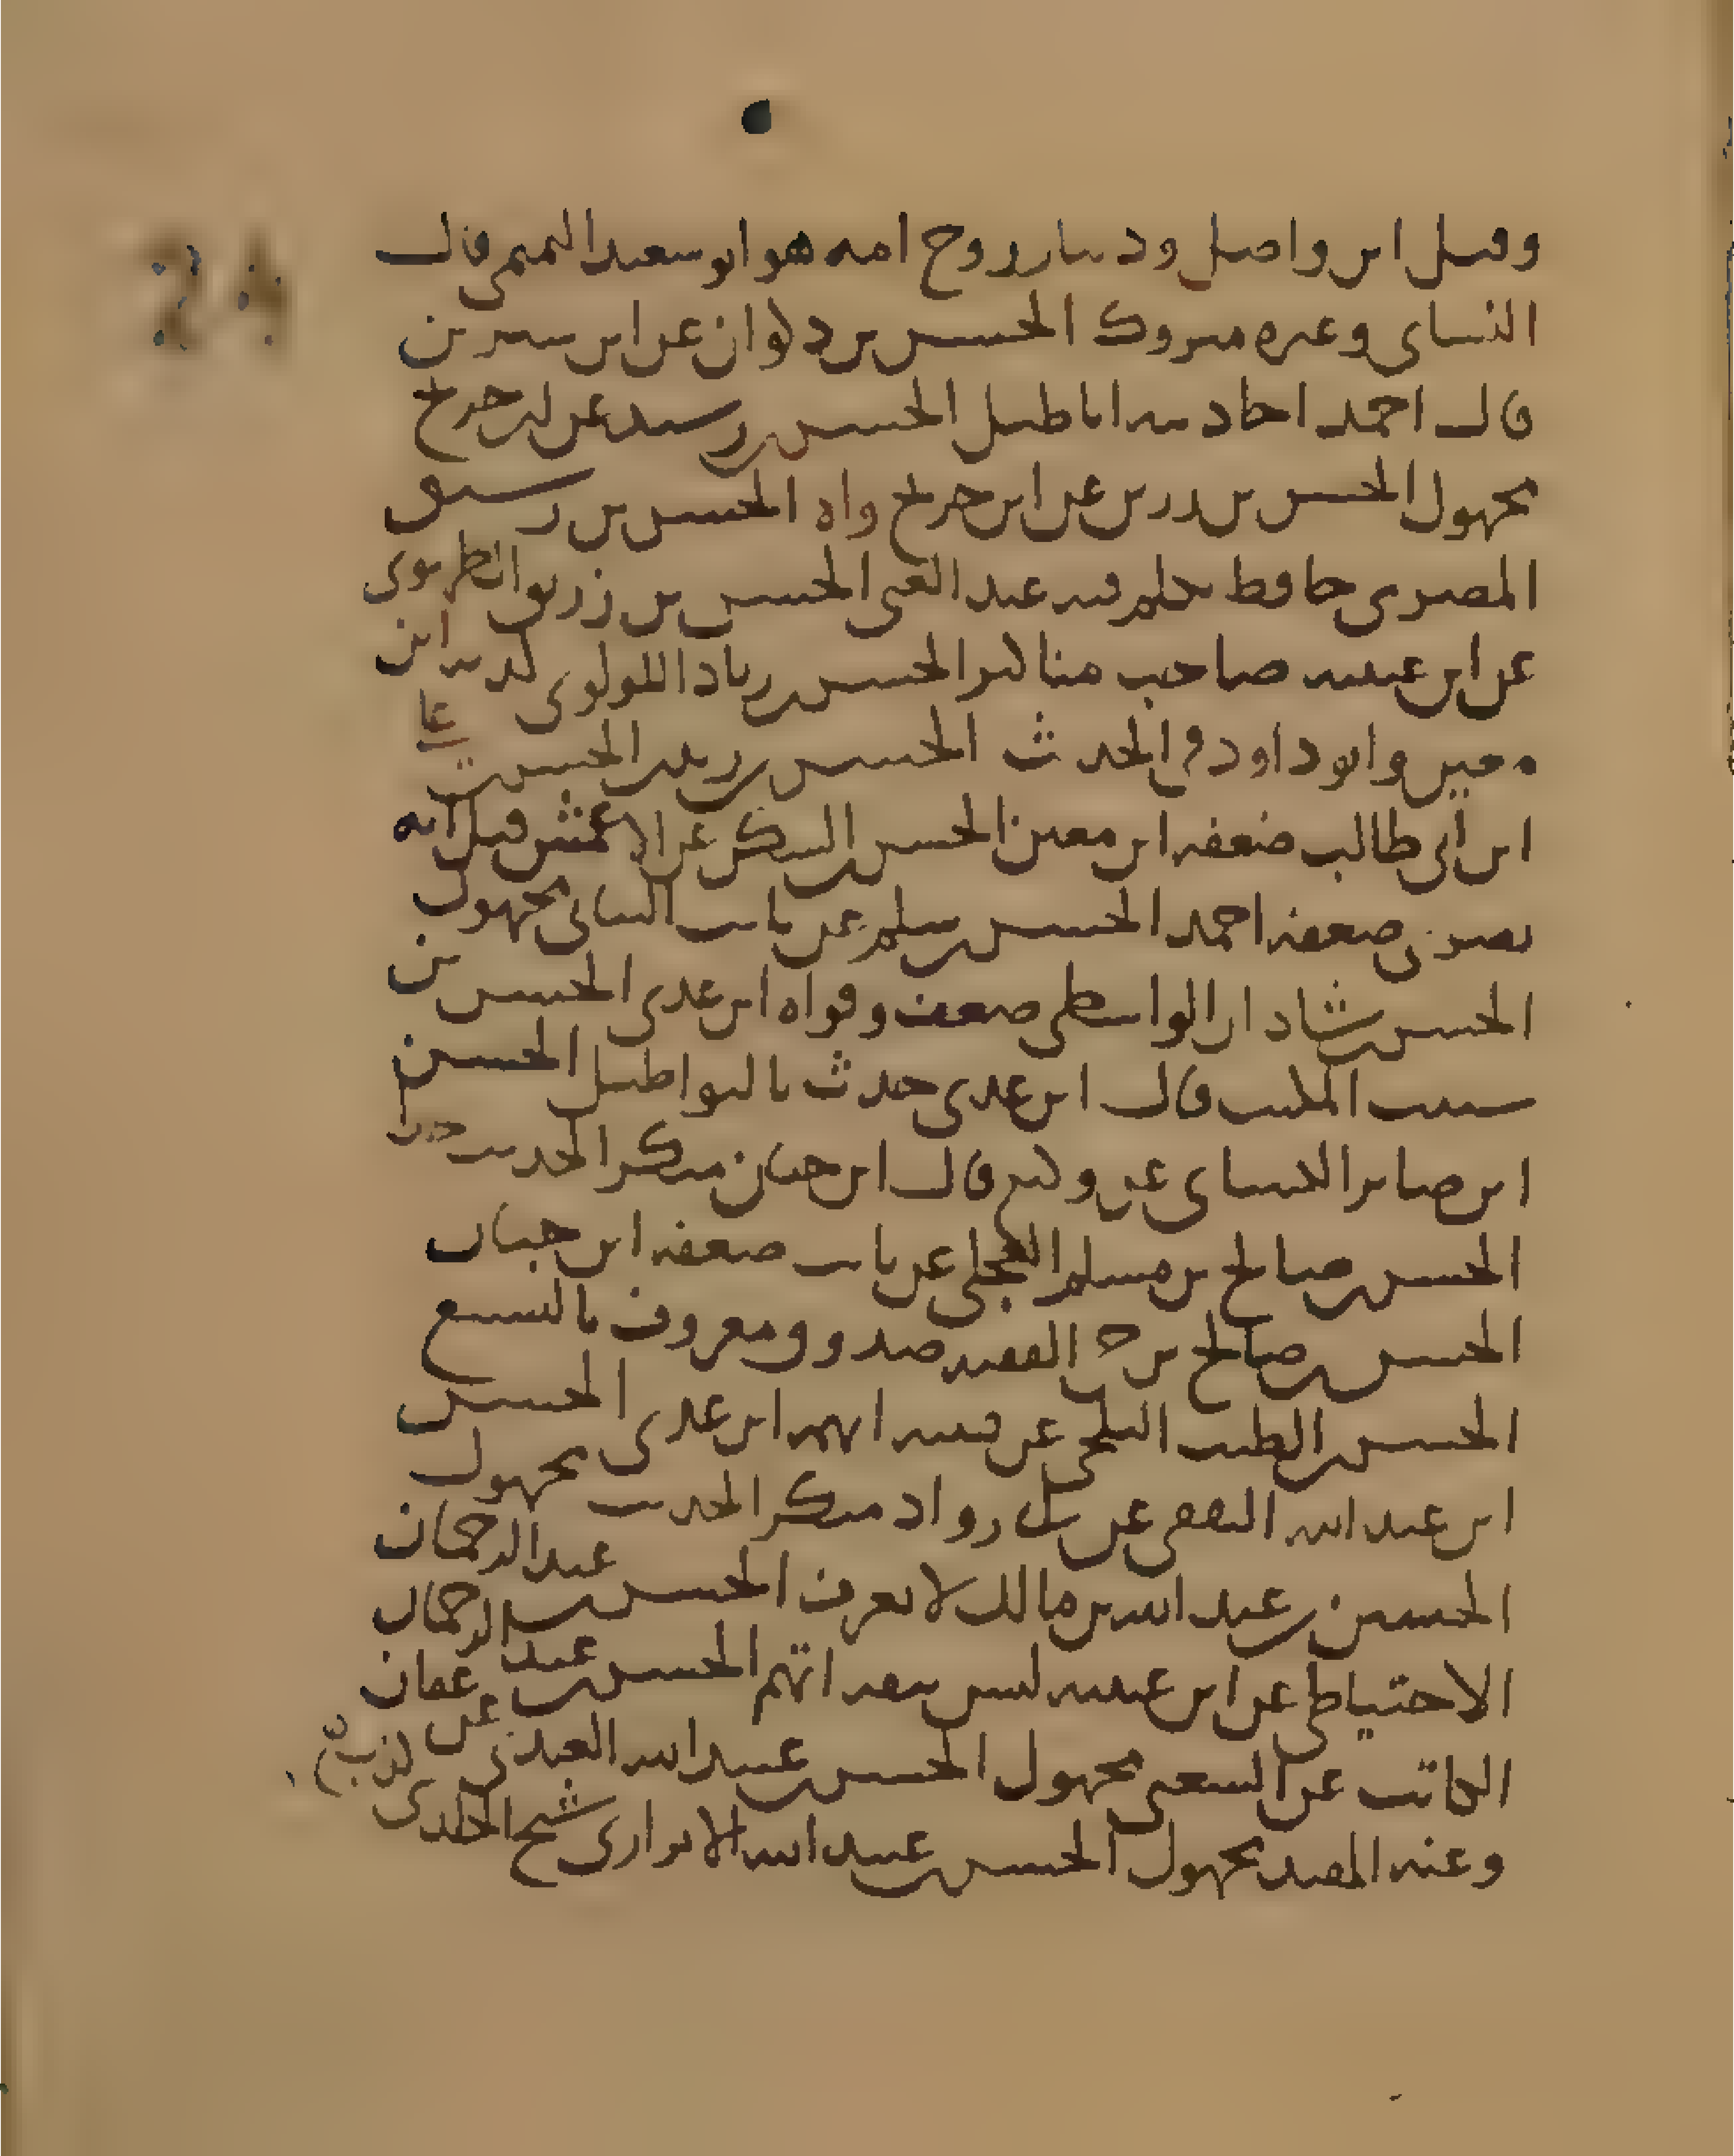 وقيل ابن واصل ودينار زوج امه هو ابو سعيد التميمي قال
النساي وغيره متروك الحسن بن ذكوان عن ابن سيرين
قال احمد احاديثه اباطيل الحسن بن رشيد عن ابن جريج
مجهول الحسن بن زريق عن ابن جريج واه الحسن بن رشيق
المصري حافظ تكلم فيه عبد الغني الحسن بن زريق الطهوي
عن ابن عيينه صاحب مناكير الحسن بن زياد اللولوي كذبه ابن
معين وابو داود في الحديث الحسن بن زيد بن الحسن بن علي
ابن ابي طالب ضعفه ابن معين الحسن بن السكن عن الاعمش قيل انه
بصري ضعفه احمد الحسن بن سلم عن ثابت البناني مجهول
الحسن بن شاذان الواسطي ضعف وقواه ابن عدي الحسن بن
شبيب المكتب قال ابن عدي حدث بالبواطيل الحسن
ابن صابر الكسائي عن وكيع قال ابن حبان منكر الحديث جدا
الحسن بن صالح بن مسلم العجلي عن ثابت ضعفه ابن حبان
الحسن بن صالح بن حي الفقيه صدوق ومعروف بالتشيع
الحسن بن الطيب البلخي عن قتيبه اتهمه ابن عدي الحسن
ابن عبد الله الثقفي عن رواد منكر الحديث مجهول
الحسين بن عبد الله بن مالك لا يعرف الحسن بن عبد الرحمان
الاحتياطي عن ابن عيينه ليس بثقه اتهم الحسن بن عبد الرحمان
الكاتب عن الشعبي مجهول الحسن بن عبيد الله العبدي عن عفان
وعنه المفيد مجهول الحسن بن عبيد الله الابزاري شيخ الخلدي